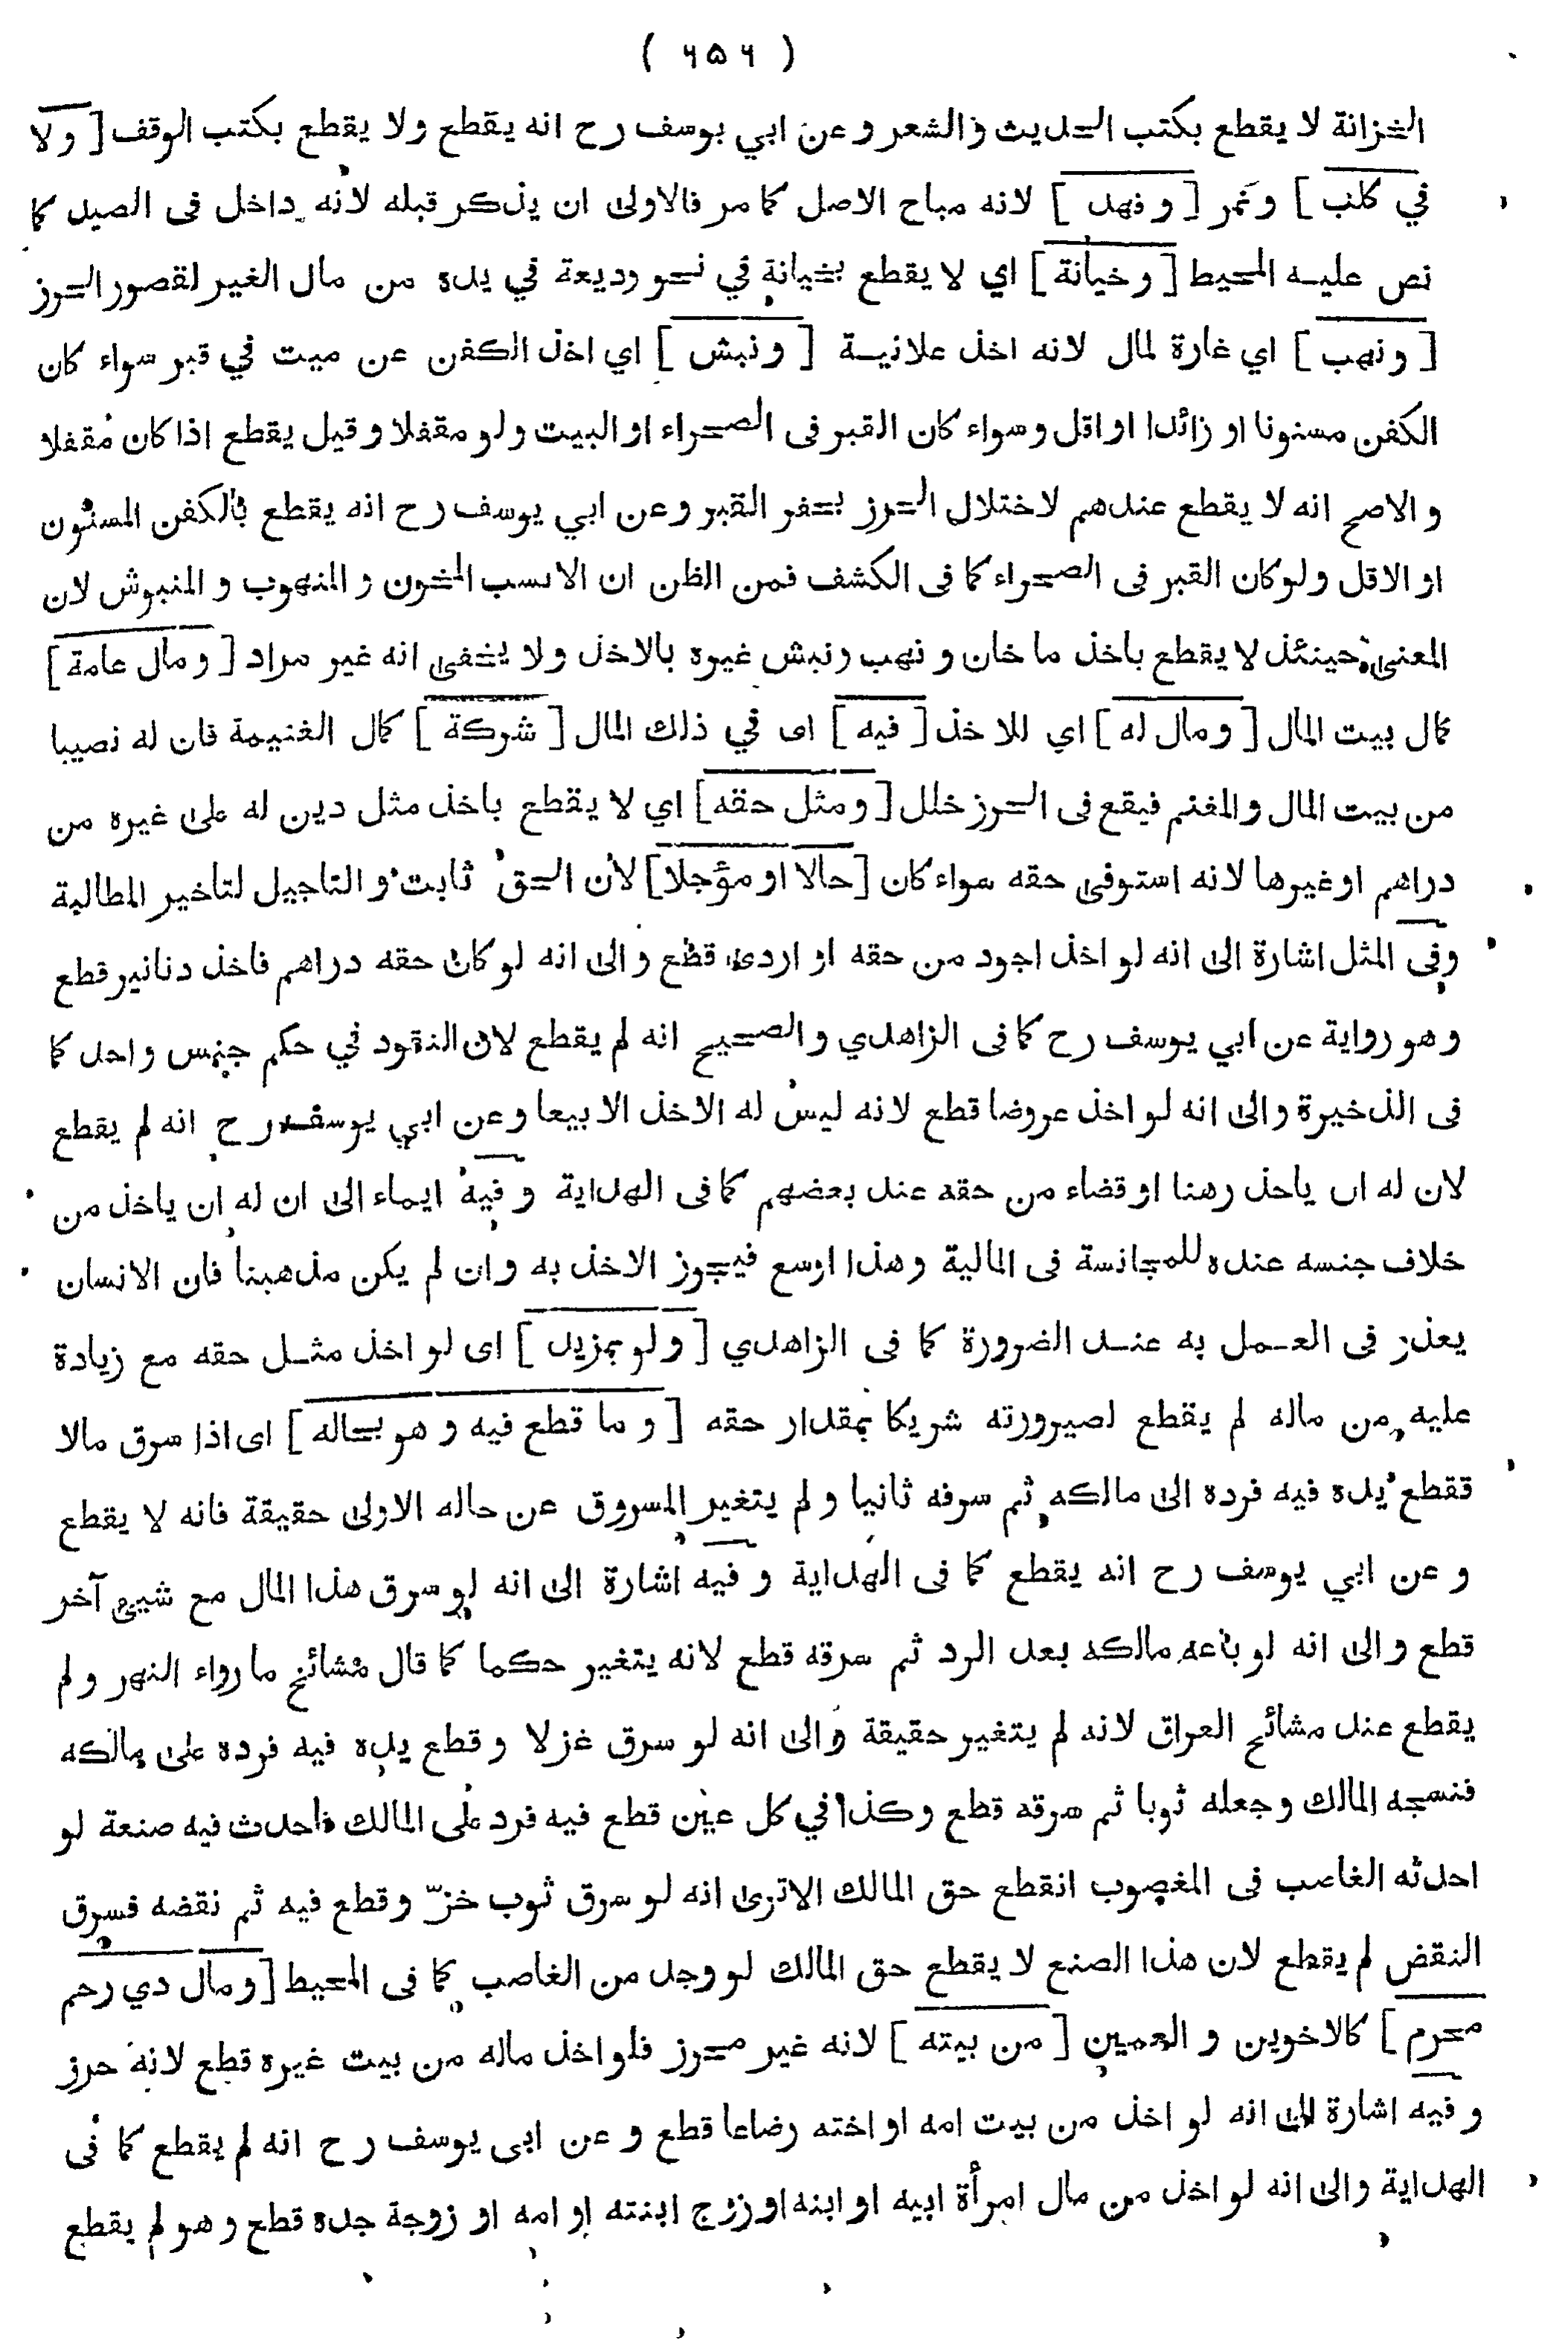 ( ٦٥٦ )
الخزانة لا يقطع بكتب الحديث والشعر وعن ابي يوسف رح انه يقطع ولا يقطع بكتب الوقف [ ولا
في كلب ] ونمر [ وفهد ] لانه مباح الاصل كما مر فالاولى ان يذكر قبله لانه داخل فى الصيد كما
نص عليه المحيط [ وخيانة ] اي لا يقطع بخيانة في نحو وديعة في يده من مال الغير لقصور الحرز
[ ونهب ] اي غارة لمال لانه اخذ علانية [ ونبش ] اي اخذ الكفن عن ميت في قبر سواء كان
الكفن مسنونا او زائدا او اقل وسواء كان القبر فى الصحراء او البيت ولو مقفلا وقيل يقطع اذا كان مقفلا
والاصح انه لا يقطع عندهم لاختلال الحرز بحفر القبر وعن ابي يوسف رح انه يقطع بالكفن المسنون
او الاقل ولو كان القبر فى الصحراء كما فى الكشف فمن الظن ان الانسب المخون والمنهوب والمنبوش لان
المعنى حينئذ لا يقطع باخذ ما خان ونهب ونبش غيره بالاخذ ولا يخفى انه غير مراد [ ومال عامة ]
كمال بيت المال [ ومال له ] اي للاخذ [ فيه ] اى في ذلك المال [ شركة ] كمال الغنيمة فان له نصيبا
من بيت المال والمغنم فيقع فى الحرز خلل [ ومثل حقه ] اي لا يقطع باخذ مثل دين له على غيره من
دراهم او غيرها لانه استوفى حقه سواء كان [ حالا او مؤجلا ] لان الحق ثابت والتاجيل لتاخير المطالبة
وفى المثل اشارة الى انه لو اخذ اجود من حقه او اردى قطع والى انه لو كان حقه دراهم فاخذ دنانير قطع
وهو رواية عن ابي يوسف رح كما فى الزاهدي والصحيح انه لم يقطع لان النقود في حكم جنس واحد كما
فى الذخيرة والى انه لو اخذ عروضا قطع لانه ليس له الاخذ الا بيعا وعن ابي يوسف رح انه لم يقطع
لان له ان ياخذ رهنا او قضاء من حقه عند بعضهم كما فى الهداية وفيه ايماء الى ان له ان ياخذ من
خلاف جنسه عنده للمجانسة فى المالية وهذا اوسع فيجوز الاخذ به وان لم يكن مذهبنا فان الانسان
يعذر فى العمل به عند الضرورة كما فى الزاهدي [ ولو بمزيد ] اى لو اخذ مثل حقه مع زيادة
عليه من ماله لم يقطع لصيرورته شريكا بمقدار حقه [ وما قطع فيه وهو بحاله ] اى اذا سرق مالا
فقطع يده فيه فرده الى مالكه ثم سرقه ثانيا ولم يتغير المسروق عن حاله الاولى حقيقة فانه لا يقطع
وعن ابي يوسف رح انه يقطع كما فى الهداية وفيه اشارة الى انه لو سرق هذا المال مع شيئ آخر
قطع والى انه لو باعه مالكه بعد الرد ثم سرقه قطع لانه يتغير حكما كما قال مشائخ ماوراء النهر ولم
يقطع عند مشائخ العراق لانه لم يتغير حقيقة والى انه لو سرق غزلا وقطع يده فيه فرده على مالكه
فنسجه المالك وجعله ثوبا ثم سرقه قطع وكذا في كل عين قطع فيه فرد على المالك فاحدث فيه صنعة لو
احدثه الغاصب فى المغصوب انقطع حق المالك الاترى انه لو سرق ثوب خزّ وقطع فيه ثم نقضه فسرق
النقض لم يقطع لان هذا الصنع لا يقطع حق المالك لو وجد من الغاصب كما فى المحيط [ ومال ذي رحم
محرم ] كالاخوين والعمين [ من بيته ] لانه غير محرز فلو اخذ ماله من بيت غيره قطع لانه حرز
وفيه اشارة الى انه لو اخذ من بيت امه او اخته رضاعا قطع وعن ابى يوسف رح انه لم يقطع كما فى
الهداية والى انه لو اخذ من مال امرأة ابيه او ابنه او زوج ابنته او امه او زوجة جده قطع وهو لم يقطع